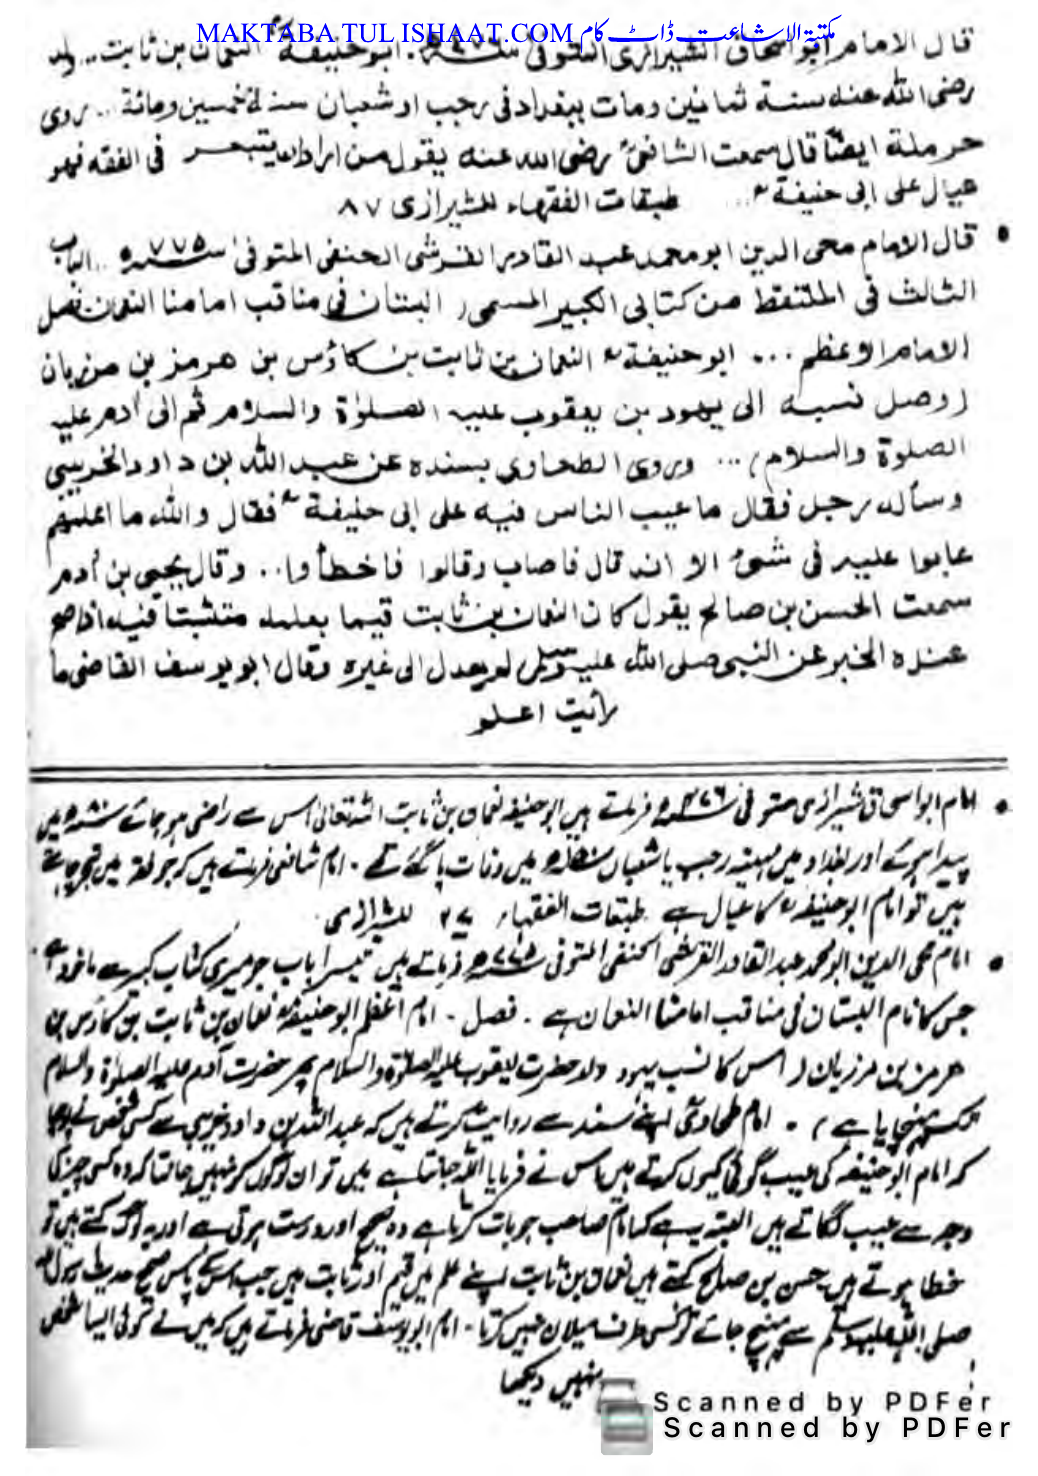 MAKTABA.TUL.ISHAAT.COM مکتبۃ الاشاعت ڈاٹ کام
قال الامام ابو اسحاق الشیرازی المتوفی ۴۷۶ھ. ابو حنیفۃؒ النعمان بن ثابت ...
رضی اللہ عنہ سنۃ ثمانین ومات ببغداد فی رجب او شعبان سنۃ خمسین ومائۃ .. روی
حرملۃ ایضًا قال سمعت الشافعیؒ رضی اللہ عنہ یقول من اراد ان یتبحر فی الفقہ فھو
عیال علی ابی حنیفۃؒ ... طبقات الفقھاء للشیرازی ۸۷
• قال الامام محی الدین ابو محمد عبد القادر القرشی الحنفی المتوفی ۷۷۵ھ .. الباب
الثالث فی الملتقط من کتابی الکبیر المسمی ( البستان فی مناقب امامنا النعمان فصل
الامام الاعظم ... ابو حنیفۃؒ النعمان بن ثابت بن کاؤس بن ھرمز بن مرزبان
( وصل نسبہ الی یھود بن یعقوب علیہ الصلوٰۃ والسلام ثم الی اٰدم علیہ
الصلوۃ والسلام ) ... وروی الطحاوی بسندہ عن عبد اللہ بن داود الخریبی
وسألہ رجل فقال ما عیب الناس فیہ علی ابی حنیفۃؒ فقال واللہ ما اعلمھم
عابوا علیہ فی شیئ الا انہ قال فاصاب وقالوا فاخطأوا .. وقال یحیی بن اٰدم
سمعت الحسن بن صالح یقول کان النعمان بن ثابت فیما بعلمہ متثبتا فیہ اذا صح
عندہ الخبر عن النبی صلی اللہ علیہ وسلم لم یعدل الی غیرہ وقال ابو یوسف القاضی ما
رأیت اعلم
• امام ابو اسحاق شیرازی متوفی ۴۷۶ھ فرماتے ہیں ابو حنیفہ نعمان بن ثابت اللہ تعالیٰ اس سے راضی ہو جائے ۸۰ھ میں
پیدا ہوئے اور بغداد میں مہینہ رجب یا شعبان ۱۵۰ھ میں وفات پاگئے تھے ۔ امام شافعی فرماتے ہیں کہ جو فقہ میں تبحر چاہتے
ہیں تو امام ابو حنیفہؒ کا عیال ہے طبقات الفقہاء للشیرازی .
• امام محی الدین ابو محمد عبد القادر القرشی الحنفی المتوفی ۷۷۵ھ فرماتے ہیں تیسرا باب جو میری کتاب کبیر سے ماخوذ ہے
جس کا نام البستان فی مناقب امامنا النعمان ہے . فصل ۔ امام اعظم ابو حنیفہؒ نعمان بن ثابت بن کاؤس بن
ھرمز بن مرزبان ( اس کا نسب یہود ولد حضرت یعقوب علیہ الصلوٰۃ والسلام پھر حضرت آدم علیہ الصلوٰۃ والسلام
تک پہنچایا ہے ) ۔ امام طحاویؒ اپنے سند سے روایت کرتے ہیں کہ عبد اللہ بن داود خریبی سے کسی شخص نے پوچھا
کہ امام ابو حنیفہ کی عیب گوئی کیوں کرتے ہیں اس نے فرمایا اللہ جانتا ہے میں تو ان لوگوں کو نہیں جانتا کہ وہ کسی چیز کی
وجہ سے عیب لگاتے ہیں البتہ یہ ہے کہ امام صاحب جو بات کرتا ہے وہ صحیح اور درست ہوتی ہے اور یہ لوگ کہتے ہیں تو
خطا ہوتے ہیں حسن بن صالح کہتے ہیں نعمان بن ثابت اپنے علم میں فہیم اور ثابت ہیں جب اس کے پاس صحیح حدیث رسول اللہ
صلی اللہ علیہ وسلم سے پہنچ جائے تو کسی طرف میلان نہیں کرتا ۔ امام ابو یوسف قاضی فرماتے ہیں کہ میں نے کوئی ایسا شخص
نہیں دیکھا
Scanned by PDFer
Scanned by PDFer